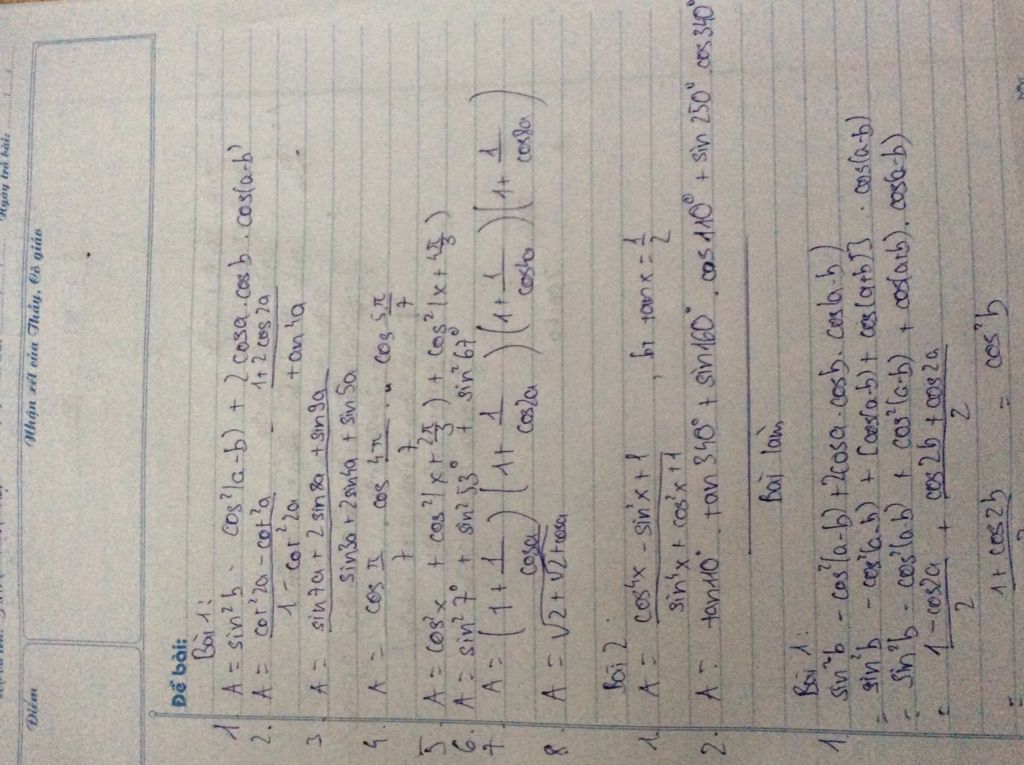 Ngày trả bài:
Điểm
Nhận xét của Thầy, Cô giáo
Đề bài:
Bài 1:
1. A = sin²b - cos²(a-b) + 2cosa.cosb.cos(a-b)
2. A = (cot²2a - cot²a)/(1 - cot²2a) - (1+2cos2a)/(tan4a)
3. A = (sin7a + 2sin8a + sin9a)/(sin3a + 2sin4a + sin5a)
4. A = cos π/7 . cos 4π/7 . cos 5π/7
5. A = cos²x + cos²(x + 2π/3) + cos²(x + 4π/3)
6. A = sin²7° + sin²53° + sin²67°
7. A = (1 + 1/cosa)(1 + 1/cos2a)(1 + 1/cos4a)(1 + 1/cos8a)
8. A = √2+√2+cosa
Bài 2.
1. A = (cos⁴x - sin²x + 1)/(sin⁴x + cos²x + 1), bt tanx = 1/2
2. A = tan110°. tan340° + sin160°. cos110° + sin250°. cos340°
Bài làm
Bài 1:
1. sin²b - cos²(a-b) + 2cosa.cosb.cos(a-b)
= sin²b - cos²(a-b) + [cos(a-b) + cos(a+b)] . cos(a-b)
= sin²b - cos²(a-b) + cos²(a-b) + cos(a+b).cos(a-b)
= (1 - cos2a)/2 + (cos2b + cos2a)/2
= (1 + cos2b)/2 = cos²b